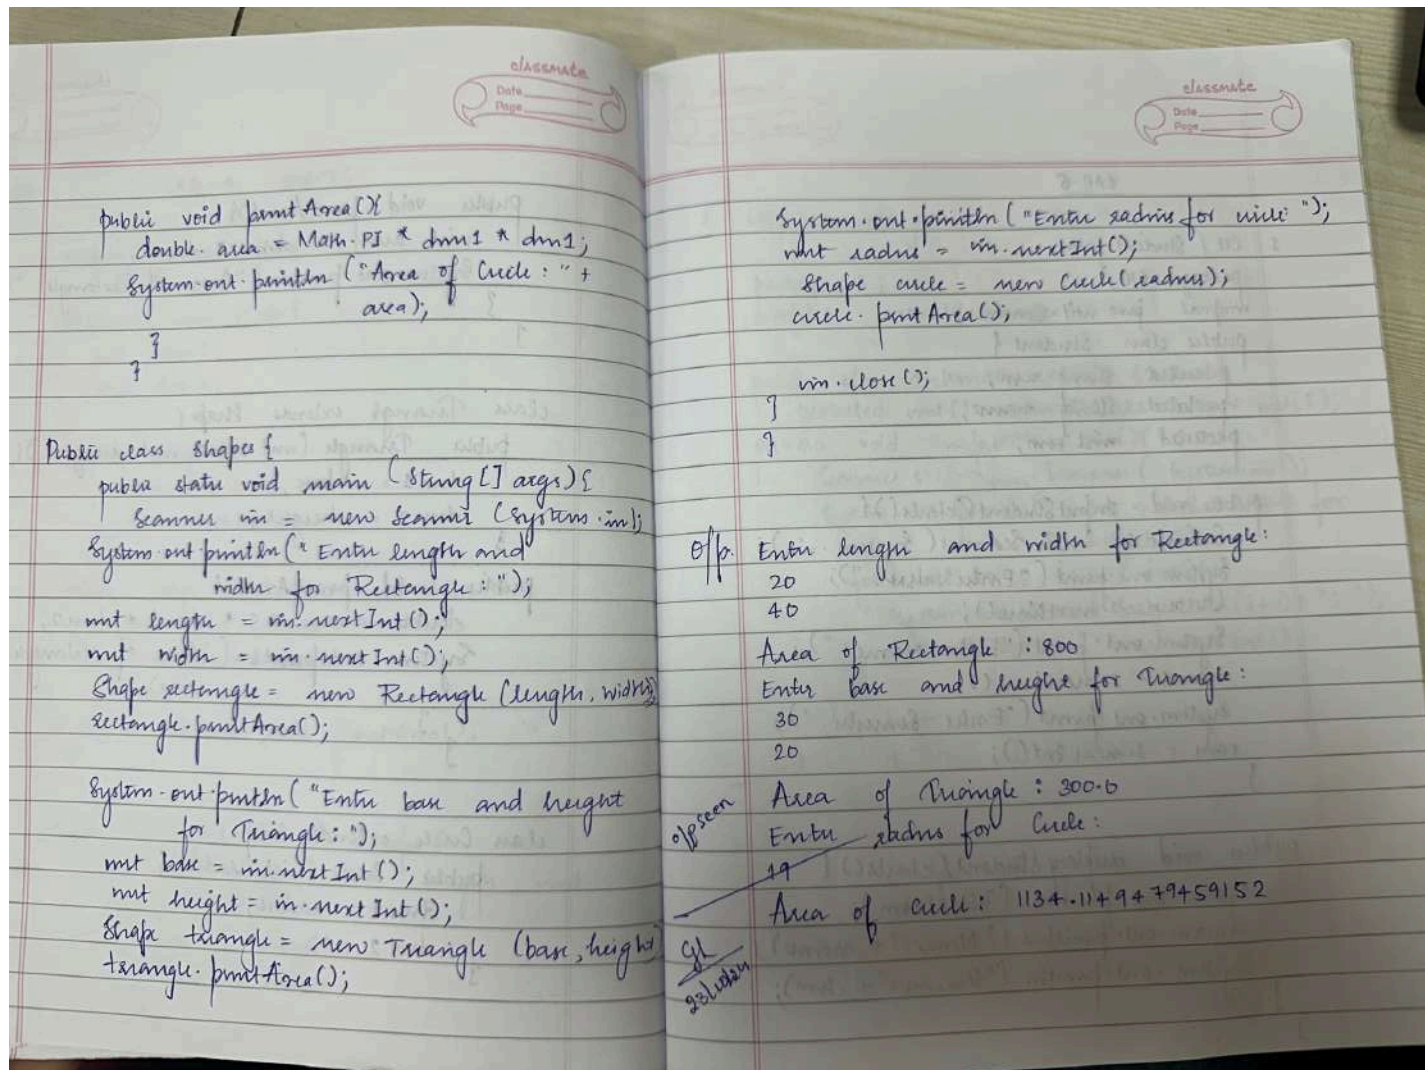 classmate
Date
Page
public void printArea(){
double area = Math.PI * dim1 * dim1;
System.out.println ("Area of Circle : " +
area);
}
}
Public class Shapes {
public static void main (String [] args) {
Scanner in = new Scanner (System.in);
System.out.println (" Enter length and
width for Rectangle : ");
int length = in.nextInt ();
int width = in.nextInt ();
Shape rectangle = new Rectangle (length, width);
rectangle.printArea();
System.out.println ("Enter base and height
for Triangle : ");
int base = in.nextInt ();
int height = in.nextInt ();
Shape triangle = new Triangle (base, height)
triangle.printArea();
classmate
Date
Page
System.out.println ("Enter radius for circle ");
int radius = in.nextInt();
Shape circle = new Circle(radius);
circle.printArea();
in.close ();
}
}
O/p. Enter length and width for Rectangle :
20
40
Area of Rectangle : 800
Enter base and height for Triangle :
30
20
Area of Triangle : 300.0
o/p seen
Enter radius for Circle :
19
Area of Circle : 1134.1149479459152
23/10/24